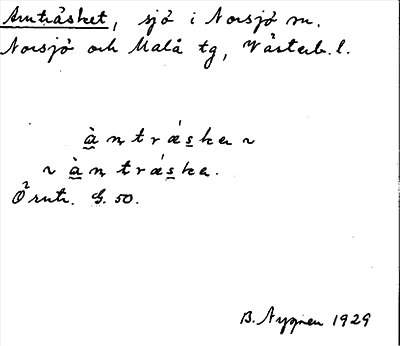 Amträsket, sjö i Norsjö sn.
Norsjö och Malå tg, Västerb. l.
àmtrǽska ~
~ àmtrǽska.
G. 50.
B. Nygren 1929